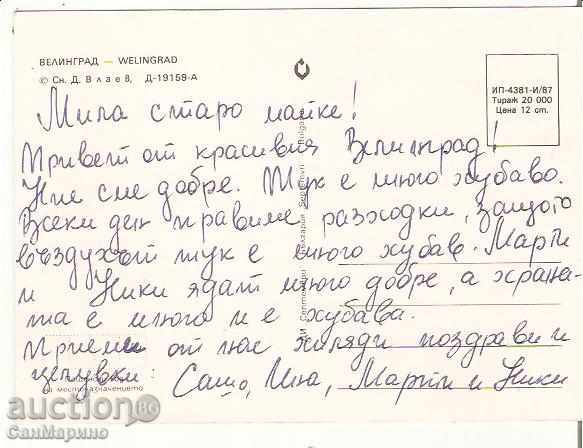 ВЕЛИНГРАД — WELINGRAD
© Сн. Д. Влаев, Д-19159-А
ИП-4381-И/87
Тираж 20 000
Цена 12 ст.
Мила старо майке!
Привет от красивия Велинград!
Ние сме добре. Тук е много хубаво.
Всеки ден правиме разходки, защото
въздухът тук е много хубав. Марти
и Ники ядат много добре, а храна-
та е много и е хубава.
Приеми от нас хиляди поздрави и
целувки: Сашо, Ина, Марти и Ники
на местоназначението
auction.BG
СанМарино